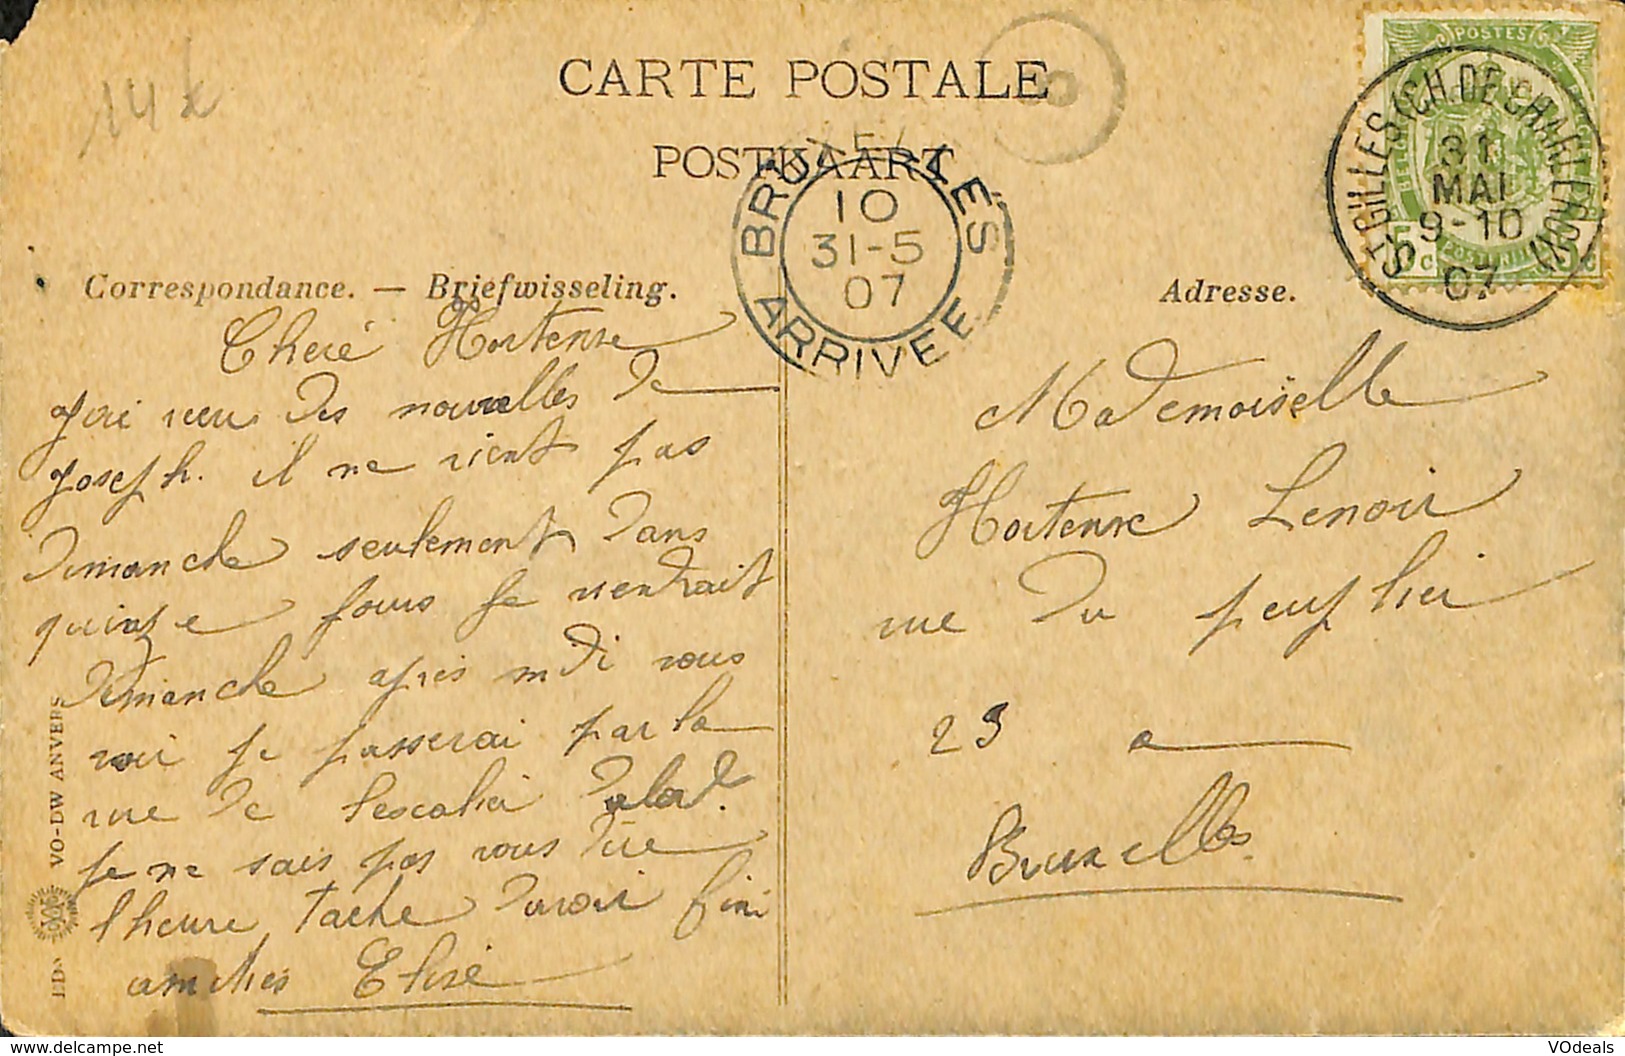 14 k
CARTE POSTALE
POSTKAART
BRUXELLES
10
31-5
07
ARRIVEE
ST GILLES (CH. DE CHARLEROI)
31
MAI
9-10
07
POSTES
5 c
Correspondance. — Briefwisseling.
Adresse.
Cheré Hortense
J'ai reçu des nouvelles de
Joseph. il ne vient pas
Dimanche seulement dans
quinze jours Je viendrait
Dimanche après midi vous
voir je passerai par la
rue de l'escalier
je ne sais pas vous dire
l'heure tache d'avoir fini
amities Elise
Mademoiselle
Hortense Lenoir
rue du peuplier
23 a
Bruxelles
EDS VO-DW ANVERS
VOdeals
www.delcampe.net